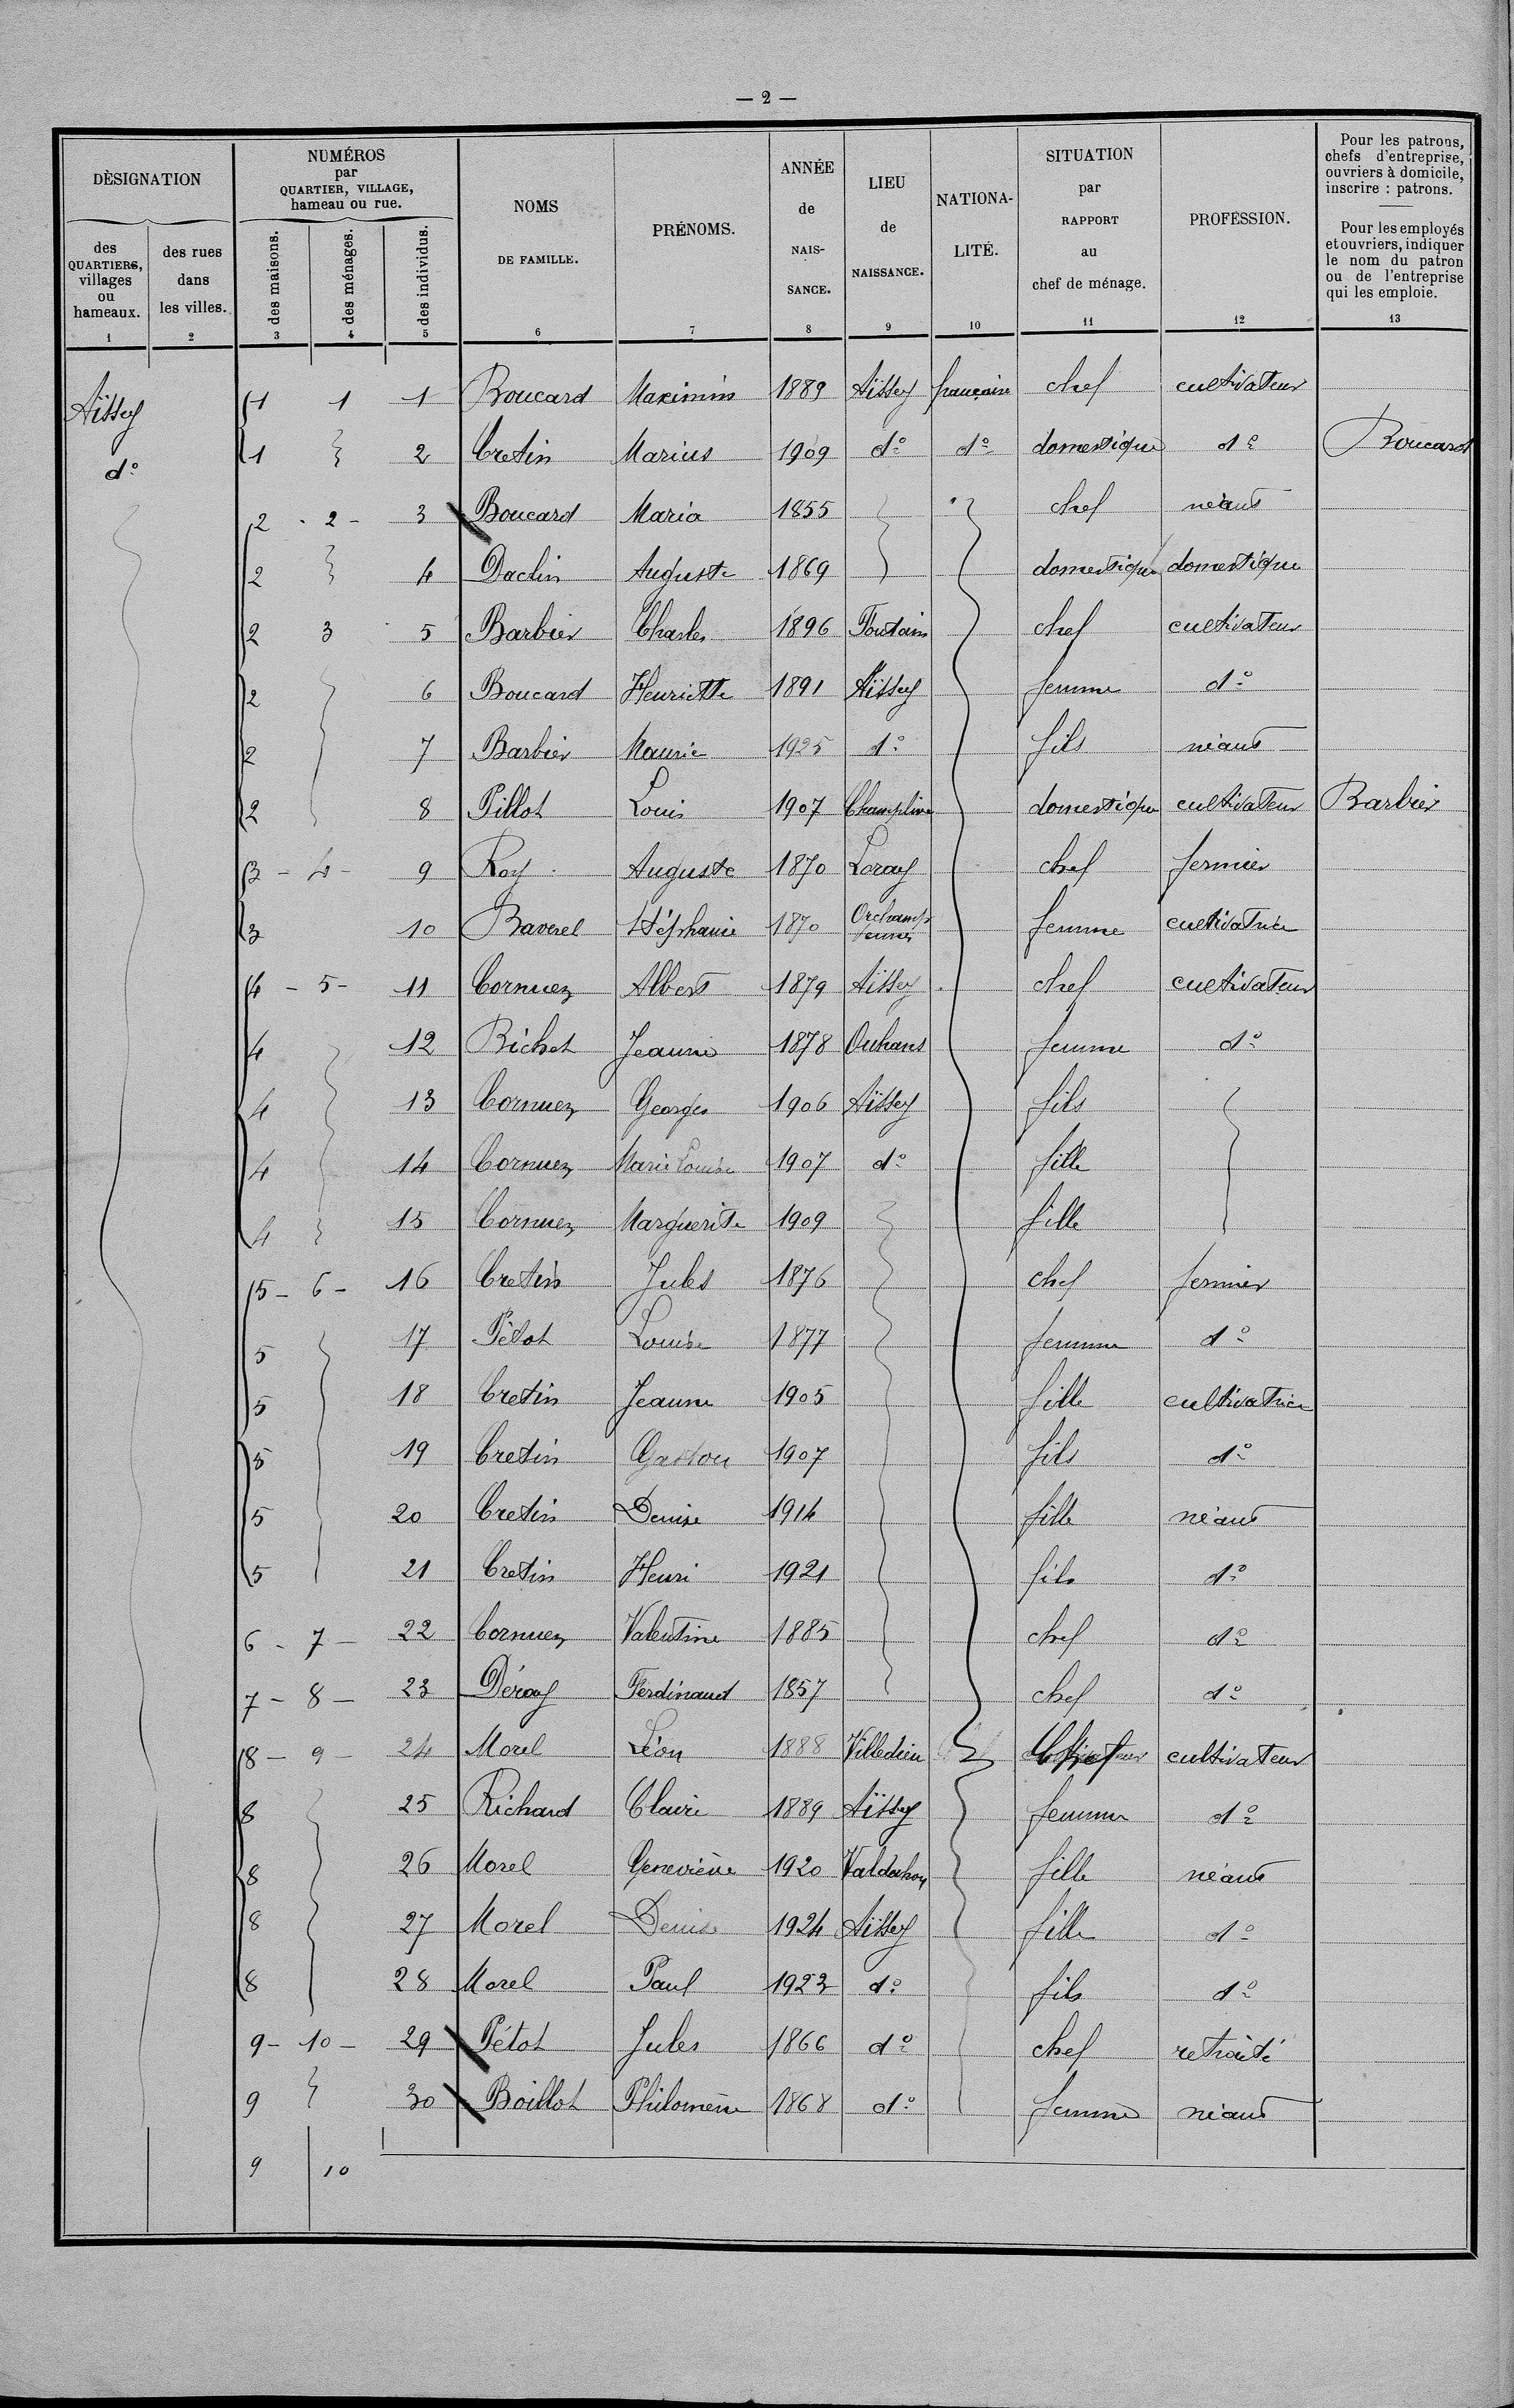 — 2 —
DÈSIGNATION
NUMÉROS
par
QUARTIER, VILLAGE,
hameau ou rue.
NOMS
DE FAMILLE.
PRÉNOMS.
ANNÉE
de
NAIS-
SANCE.
LIEU
de
NAISSANCE.
NATIONA-
LITÉ.
SITUATION
par
RAPPORT
au
chef de ménage.
PROFESSION.
Pour les patrons,
chefs d'entreprise,
ouvriers à domicile,
inscrire : patrons.
Pour les employés
et ouvriers, indiquer
le nom du patron
ou de l'entreprise
qui les emploie.
des
QUARTIERS,
villages
ou
hameaux.
des rues
dans
les villes.
des maisons.
des ménages.
des individus.
1 2 3 4 5 6 7 8 9 10 11 12 13
Aïssey 1 1 1 Boucard Maximin 1889 Aïssey française chef cultivateur
d° 1 2 Cretin Marius 1909 d° d° domestique d° Boucard
2 - 2 - 3 Boucard Maria 1855 chef néant
2 4 Daclin Auguste 1869 domestique domestique
2 3 5 Barbier Charles 1896 Foutain chef cultivateur
2 6 Boucard Henriette 1891 Aïssey femme d°
2 7 Barbier Maurice 1925 d° fils néant
2 8 Pillot Louis 1907 Champlive domestique cultivateur Barbier
3 - 4 - 9 Roy Auguste 1870 Loray chef fermier
3 10 Baverel Stéphanie 1870 Orchamps Vennes femme cultivatrice
4 - 5 - 11 Cornuez Albert 1879 Aïssey chef cultivateur
4 12 Richet Jeanne 1878 Ouhans femme d°
4 13 Cornuez Georges 1906 Aïssey fils
4 14 Cornuez Marie Louise 1907 d° fille
4 15 Cornuez Marguerite 1909 fille
5 - 6 - 16 Cretin Jules 1876 chef fermier
5 17 Pétot Louise 1877 femme d°
5 18 Cretin Jeanne 1905 fille cultivatrice
5 19 Cretin Gaston 1907 fils d°
5 20 Cretin Denise 1914 fille néant
5 21 Cretin Henri 1921 fils d°
6 - 7 - 22 Cornuez Valentine 1885 chef d°
7 - 8 - 23 Déroy Ferdinand 1857 chef d°
8 - 9 - 24 Morel Léon 1888 Villedieu chef cultivateur
8 25 Richard Claire 1889 Aïssey femme d°
8 26 Morel Geneviève 1920 Valdahon fille néant
8 27 Morel Denise 1924 Aïssey fille d°
8 28 Morel Paul 1923 d° fils d°
9 - 10 - 29 Pétot Jules 1866 d° chef retraité
9 30 Boillot Philomène 1868 d° femme néant
9 10